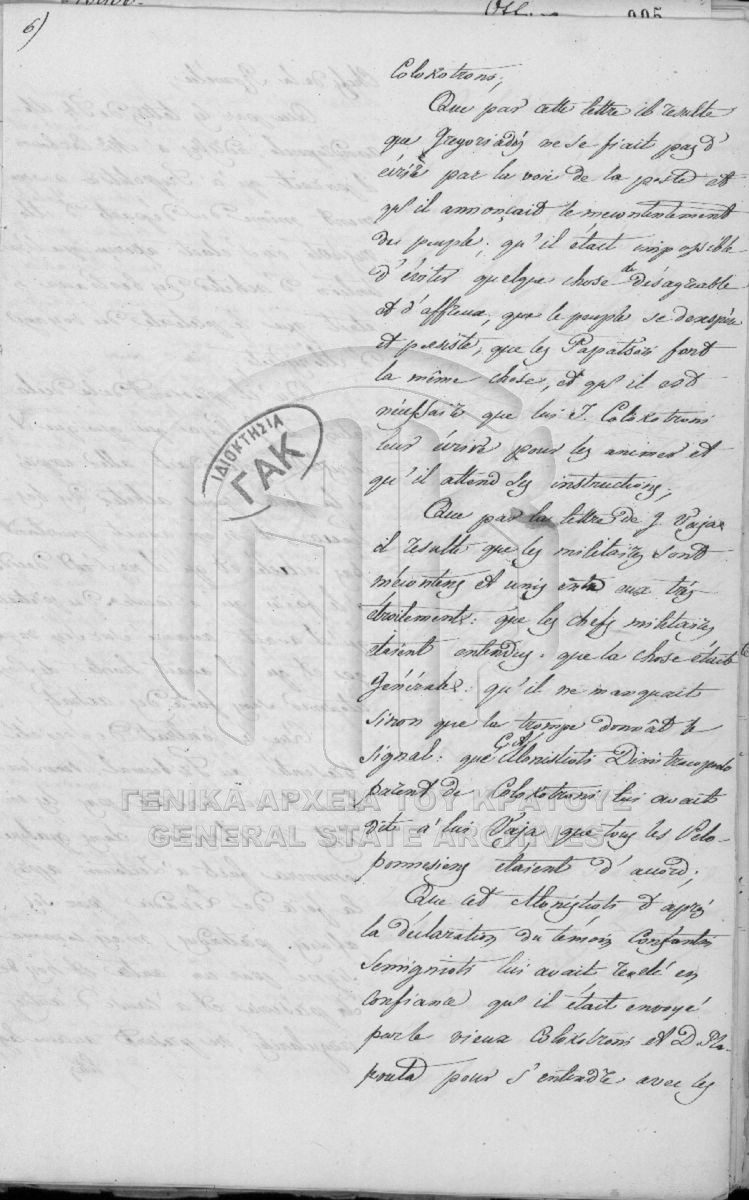 6)
Colokotroni;
Que par cette lettre il resulte
que Gregoriadis ne se fiait pas d'
écrire par la voie de la poste et
qu'il annonçait le mecontentement
du peuple; qu'il était impossible
d'éviter quelque chose de désagreable
et d'affreux, que le peuple se desespére
et persiste, que les Papatsoni font
la même chose, et qu'il est
necessaire que lui J. Colokotroni
leur écrive pour les animer et
qu'il attend ses instructions;
Que par la lettre de J. Vaja
il resulte que les militaires sont
mecontens et unis entre eux trés
étroitement: que les chefs militaires
étaient entendus. que la chose était
générale: qu'il ne manquait
sinon que la trompe donnât le
signal: que Monistioti Dimitracopoulo
parent de Colokotroni lui avait
dit à lui Vaja que tous les Pelo-
ponnesiens étaient d'accord;
Que cet Monistioti d'après
la déclaration du témoin Constantin
Semignioti lui avait revelé en
confiance qu'il était envoyé
par le vieux Colokotroni et D. Pla-
pouta pour s'entendre avec les
ΙΔΙΟΚΤΗΣΙΑ
ΓΑΚ
ΓΕΝΙΚΑ ΑΡΧΕΙΑ ΤΟΥ ΚΡΑΤΟΥΣ
GENERAL STATE ARCHIVES